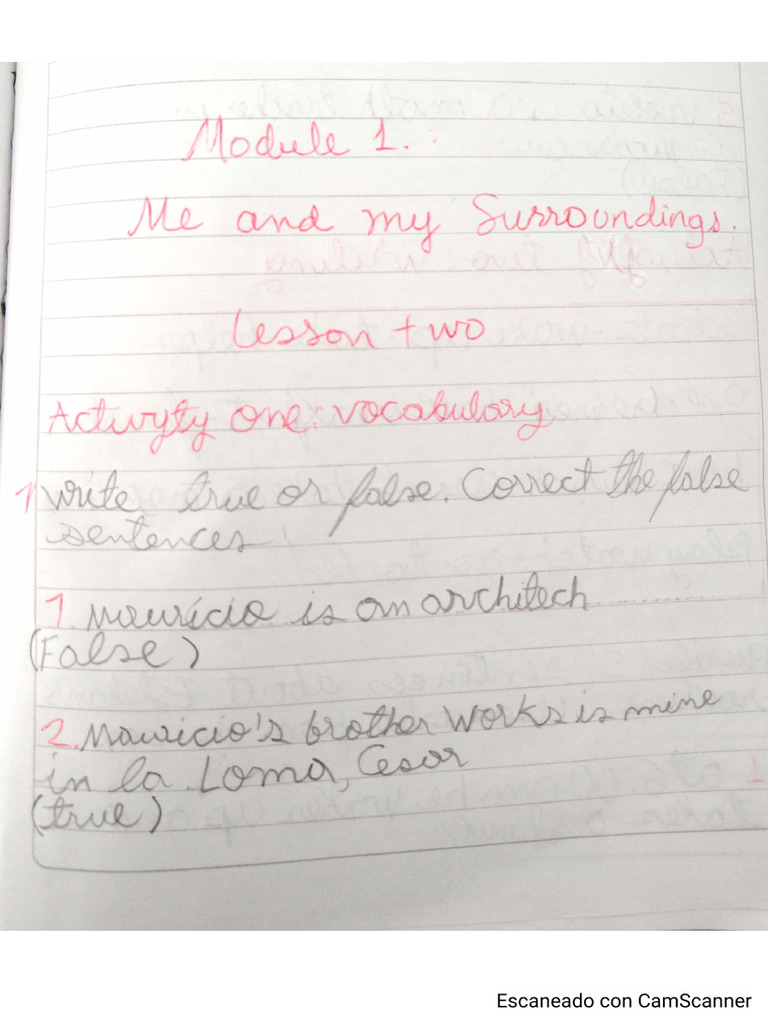 Module 1.
Me and my Surroundings.
Lesson two
Activyty One: vocabulary
1 write true or false. Correct the false
sentences
1. Mauricio is an architech
(False)
2. Mauricio's brother works is mine
in la Loma, Cesar
(true)
Escaneado con CamScanner